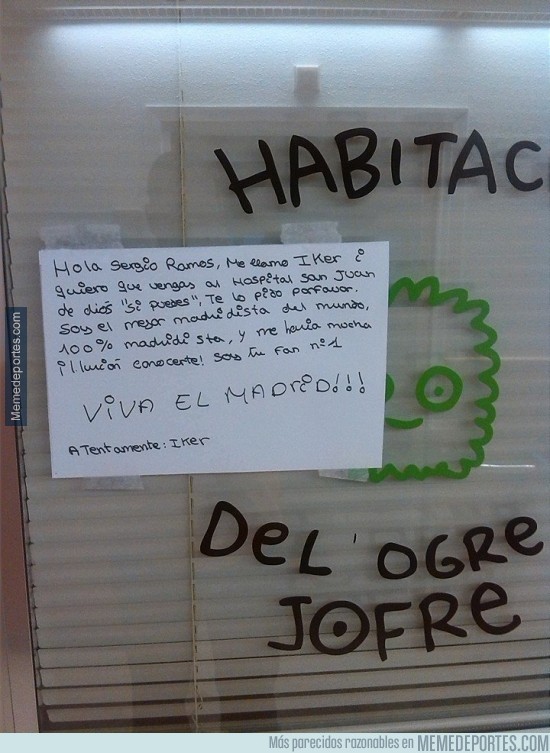 HABITAC
Hola Sergio Ramos, Me llamo IKer i
quiero que vengas al Hospital San Juan
de dios "Si puedes", Te lo pido porfavor.
Soy el mejor madridista del mundo,
100% madridista, y me haria mucha
illución conocerte! Soy tu fan nº1
VIVA EL MADRID!!!
ATentamente: IKer
DEL'OGRE
JOFRE
Memedeportes.com
Más parecidos razonables en MEMEDEPORTES.COM